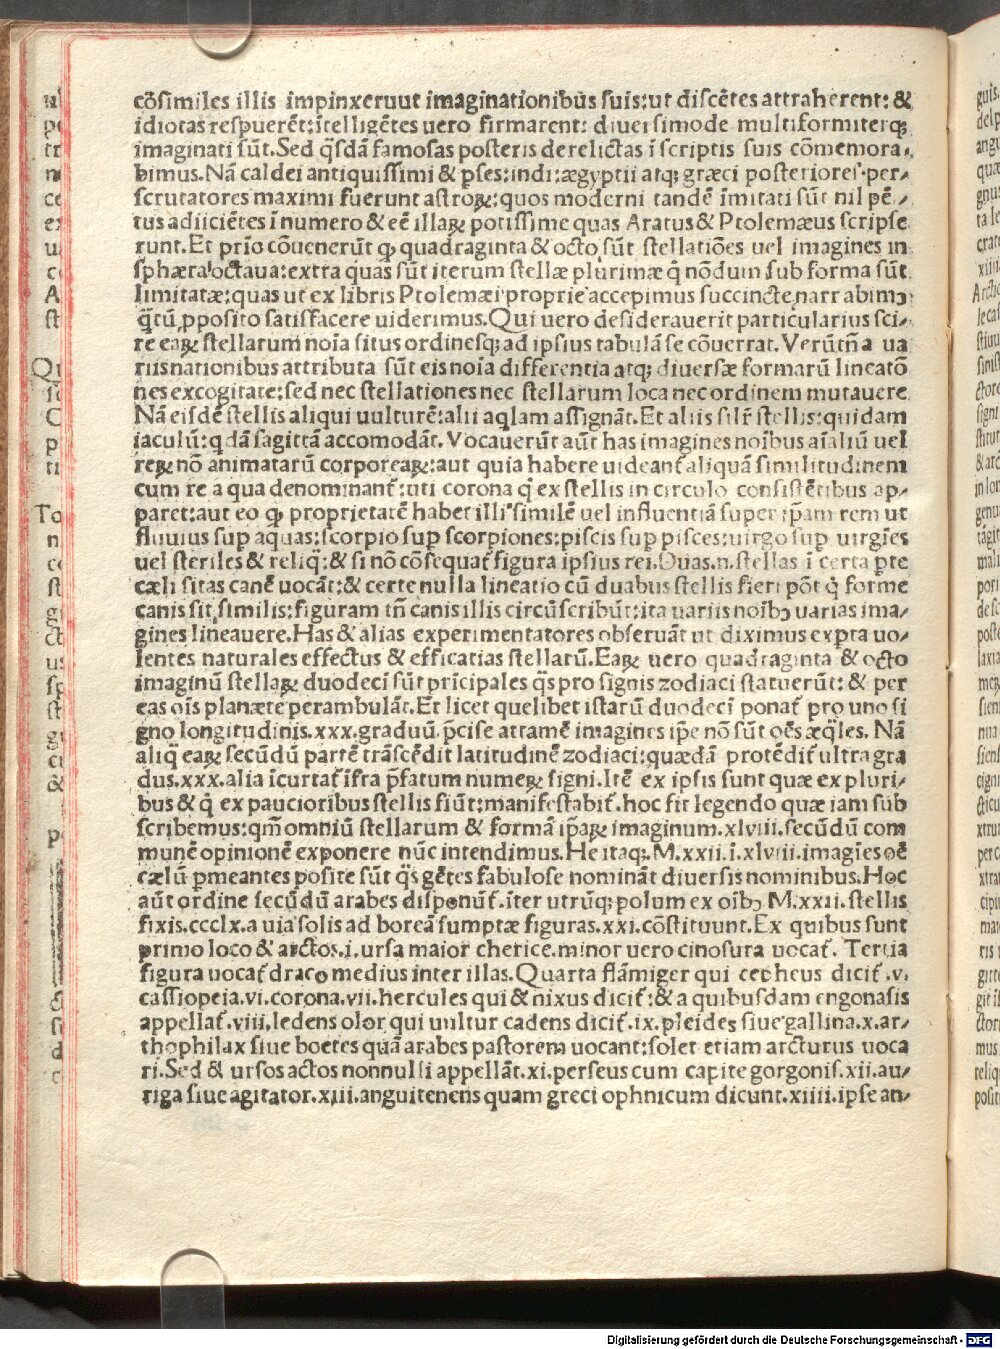 cõsimiles illis impinxeruut imaginationibus suis:ut discētes attraherent: &
idiotas respuerēt:ītelligētes uero firmarent: diuersimode multiformiterqꝫ
imaginati sūt.Sed q̃sdã famosas posteris derelictas ī scriptis suis cõmemora-
bimus.Nã caldei antiquissimi & pses:indi:ægyptii atqꝫ græci posteriores.per-
scrutatores maximi fuerunt astroꝝ:quos moderni tandē imitati sūt nil pē-
tus adiiciētes ī numero & eē illaꝝ potissime quas Aratus & Ptolemæus scripse
runt.Et prīo cõuenerūt ꝙ quadraginta & octo sūt stellatiões uel imagines in
sphæra octaua:extra quas sūt iterum stellæ plurimæ q̃ nõdum sub forma sūt
limitatæ:quas ut ex libris Ptolemæi proprie accepimus succincte narrabimꝰ
q̃tū ꝓposito satisfacere uiderimus.Qui uero desiderauerit particularius sci-
re eaꝝ stellarum noīa situs ordinesqꝫ ad ipsius tabulã se cõuerrat.Verūtñ a ua
riis nationibus attributa sūt eis noīa differentia atqꝫ diuersæ formarū lineatõ
nes excogitate:sed nec stellationes nec stellarum loca nec ordinem mutauere
Nã eisdē stellis aliqui uulturē:alii aqlam assignãt.Et aliis silr̃ stellis:quidam
iaculū:qdã sagittã accomodãt.Vocauerūt aūt has imagines noībus aīaliū uel
reꝝ nõ animatarū corporeaꝝ:aut quia habere uideant̃ aliquã similitudinem
cum re a qua denominant̃:uti corona q̃ ex stellis in circulo consistētibus ap-
paret:aut eo ꝙ proprietatē habet illi similē uel influentiã super ip̃am rem ut
fluuius suꝑ aquas:scorpio suꝑ scorpiones:piscis suꝑ pisces:uirgo suꝑ uirgīes
uel steriles & reliq̃:& si nõ cõsequat̃ figura ipsius rei.Duas.n.stellas ī certa ꝑte
cæli sitas canē uocãt:& certe nulla lineatio cū duabus stellis fieri põt q̃ forme
canis sit similis:figuram tñ canis illis circūscribūt:ita uariis noībꝰ uarias ima-
gines lineauere.Has & alias experimentatores obseruãt ut diximus exp̃ta uo-
lentes naturales effectus & efficatias stellarū.Eaꝝ uero quadraginta & octo
imaginū stellaꝝ duodecī sūt prīcipales q̃s pro signis zodiaci statuerūt: & per
eas oīs planæte perambulãt.Et licet quelibet istarū duodecī ponat̃ pro uno si
gno longitudinis.xxx.graduū.p̃cise attamē imagines ip̃e nõ sūt oēs æq̃les. Nã
aliq̃ eaꝝ secūdū partē trãscēdit latitudinē zodiaci:quædã protēdit̃ ultra gra
dus.xxx.alia īcurtat̃ īfra p̃fatum numeꝝ signi.Itē ex ipsis sunt quæ ex pluri-
bus & q̃ ex paucioribus stellis fiūt:manifestabit̃.hoc fit legendo quæ iam sub
scribemus:qm̃ omniū stellarum & formã ip̃aꝝ imaginum.xlviii.secūdū com
munē opinionē exponere nūc intendimus.He itaqꝫ.M.xxii.ī.xlviii.imagīes oē
cælū ꝑmeantes posite sūt q̃s gētes fabulose nominãt diuersis nominibus.Hoc
aūt ordine secūdū arabes disponūt̃.īter utrūqꝫ polum ex oībꝰ M.xxii.stellis
fixis.ccclx.a uia solis ad boreã sumptæ figuras.xxi.cõstituunt.Ex quibus sunt
primo loco & arctos.i.ursa maior cherice.minor uero cinosura uocat̃. Tertia
figura uocat̃ draco medius inter illas.Quarta flãmiger qui cepheus dicit̃.v.
cassiopeia.vi.corona.vii.hercules qui & nixus dicit̃:& a quibusdam engonasis
appellat̃.viii.ledens olor qui uultur cadens dicit̃.ix.pleides siue gallina.x.ar-
thophilax siue boetes quã arabes pastorem uocant:solet etiam arcturus uoca
ri.Sed & ursos actos nonnulli appellãt.xi.perseus cum capite gorgonis.xii.au-
riga siue agitator.xiii.anguitenens quam greci ophnicum dicunt.xiiii.ipse an-
Digitalisierung gefördert durch die Deutsche Forschungsgemeinschaft - DFG